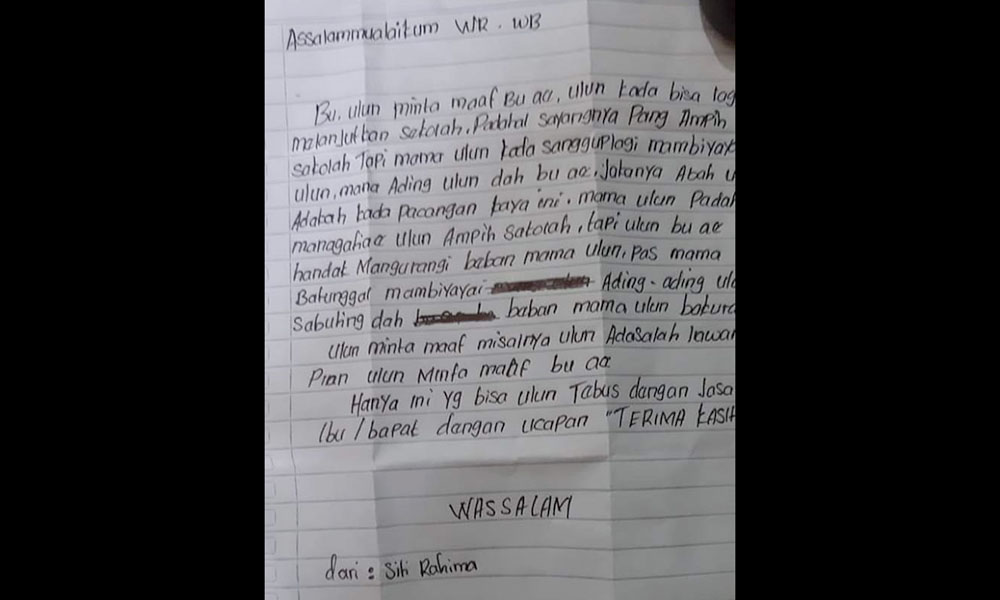 Assalammualaikum WR. WB
Bu, ulun minta maaf Bu ae, ulun kada bisa log
malanjutkan sekolah. Padahal sayangnya Pang Ampih
sakolah Tapi mama ulun kada sanggup lagi mambiyay
ulun, mana Ading ulun dah bu ae, Jakanya Abah u
Adakah kada pacangan kaya ini. mama ulun Padah
managahae ulun Ampih Sakolah, tapi ulun bu ae
handak Mangurangi baban mama ulun, pas mama
Batunggal mambiyayai Ading-ading ulu
Sabuting dah baban mama ulun bakura
ulun minta maaf misalnya ulun Adasalah lawan
Pian ulun Minta maaf bu ae
Hanya ini yg bisa ulun Tabus dangan Jasa
Ibu / bapak dangan ucapan "TERIMA KASIH
WASSALAM
dari : Siti Rahima